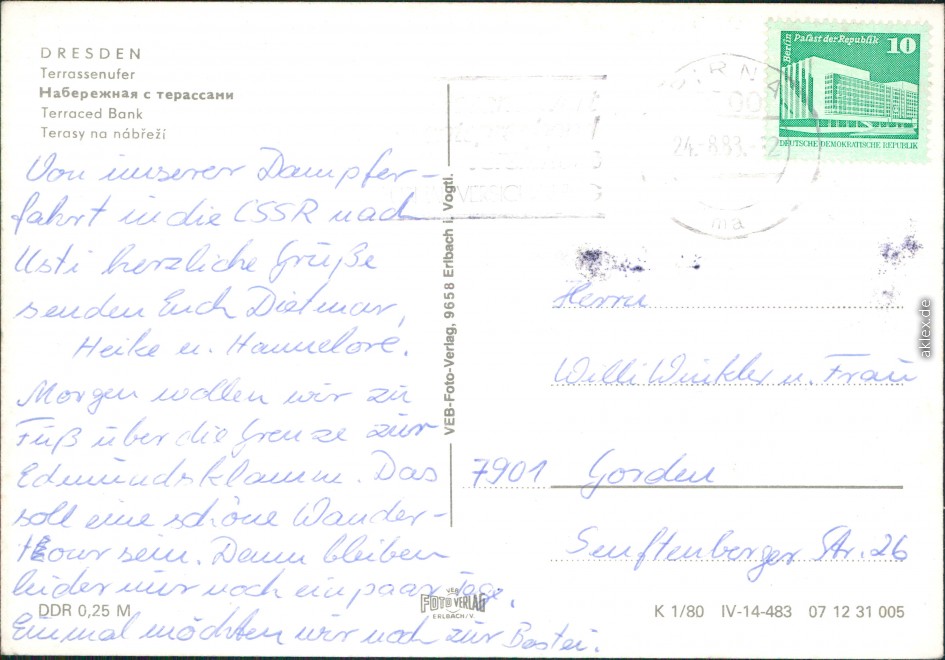 DRESDEN
Terrassenufer
Набережная с терассами
Terraced Bank
Terasy na nábřeží
Von unserer Dampfer-
fahrt in die CSSR nach
Usti herzliche Grüße
senden Euch Dietmar,
Heike u. Hannelore.
Morgen wollen wir zu
Fuß über die Grenze zur
Edmundsklamm. Das
soll eine schöne Wander-
tour sein. Dann bleiben
leider nur noch ein paar Tage.
Einmal möchten wir noch zur Bastei.
DDR 0,25 M
VEB-Foto-Verlag, 9658 Erlbach i. Vogtl.
VEB
FOTO VERLAG
ERLBACH/V.
Berlin Palast der Republik
10
DEUTSCHE DEMOKRATISCHE REPUBLIK
PIRNA
24.-8.83.-2
ma
Herrn
Willi Winkler u. Frau
7901 Gorden
Senftenberger Str. 26
K 1/80 IV-14-483 07 12 31 005
aklex.de